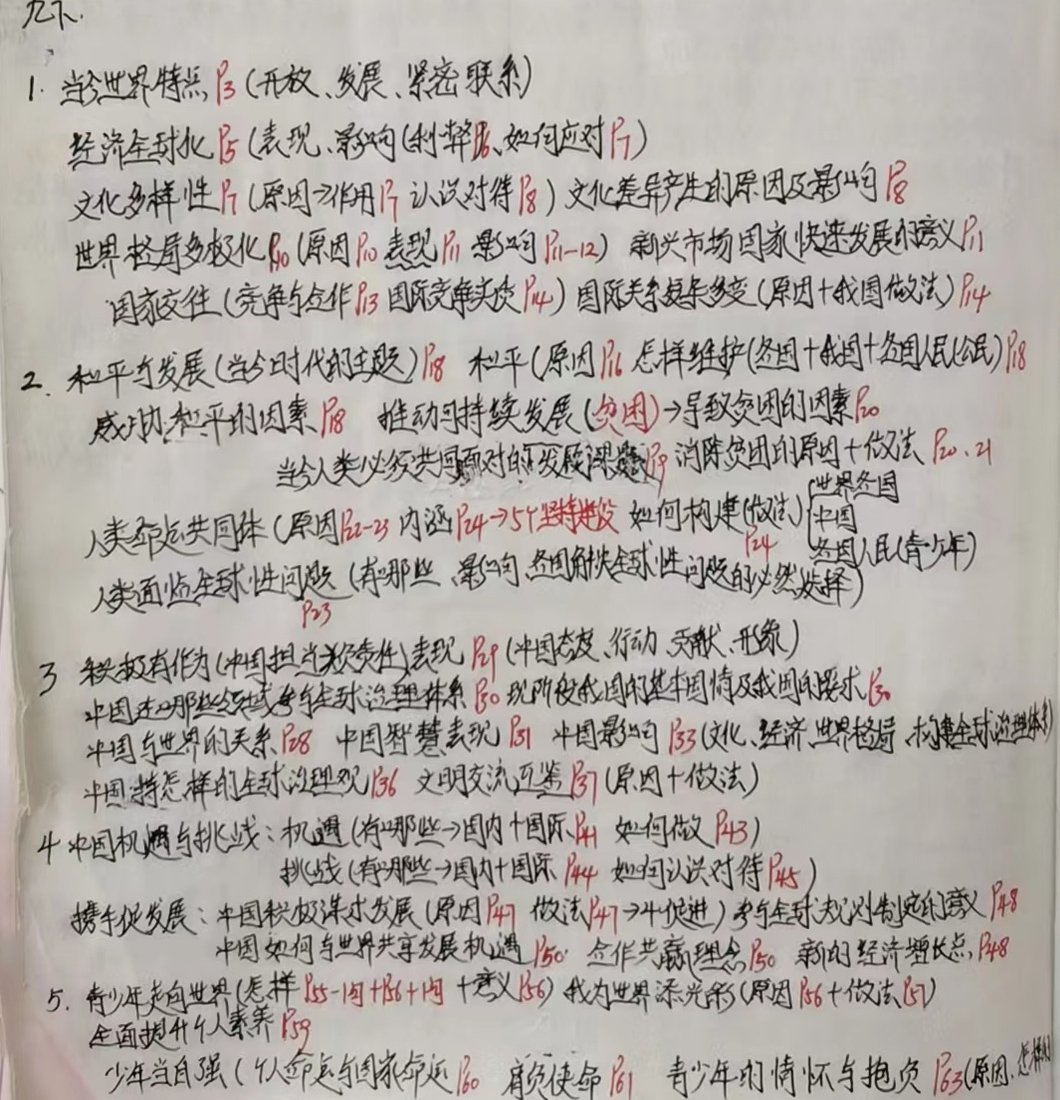 九下.
1. 当今世界特点P3(开放、发展、紧密联系)
经济全球化P5(表现、影响(利弊P6、如何应对P7)
文化多样性P7(原因→作用P7 认识对待P8) 文化差异产生的原因及影响P8
世界格局多极化P10(原因P10 表现P11 影响P11-12) 新兴市场国家快速发展的意义P11
国家交往(竞争与合作P13 国际竞争实质P14) 国际关系复杂多变(原因+我国做法)P14
2. 和平与发展(当今时代的主题)P18 和平(原因P16 怎样维护(各国+我国+各国人民(公民)P18
威胁和平的因素P18 推动可持续发展(贫困)→导致贫困的因素P20
当今人类必须共同面对的发展课题P19 消除贫困的原因+做法 P20、21
人类命运共同体(原因P22-23 内涵P24→5个坚持建设 如何构建(做法)P24{世界各国
中国
各国人民(青少年)
人类面临全球性问题(有哪些、影响、各国解决全球性问题的必然选择)
P23
3 积极有作为(中国担当负责任)表现 P29(中国态度、行动、贡献、形象)
中国在哪些领域参与全球治理体系P30 现阶段我国的基本国情及我国的要求P30
中国与世界的关系P28 中国智慧表现P31 中国影响P33(文化、经济、世界格局、构建全球治理体系)
中国持怎样的全球治理观P36 文明交流互鉴P37(原因+做法)
4 中国机遇与挑战:机遇(有哪些→国内+国际P41 如何做P43)
挑战(有哪些→国内+国际 P44 如何认识对待P45)
携手促发展:中国积极谋求发展(原因P47 做法P47→4个促进) 参与全球规则制定的意义 P48
中国如何与世界共享发展机遇P50 合作共赢理念P50 新的经济增长点P48
5. 青少年走向世界(怎样P55-1问+P56+1问+意义P56) 我为世界添光彩(原因P56+做法P57)
全面提升个人素养P59
少年当自强(个人命运与国家命运P60 肩负使命P61 青少年的情怀与抱负P63(原因、怎样做